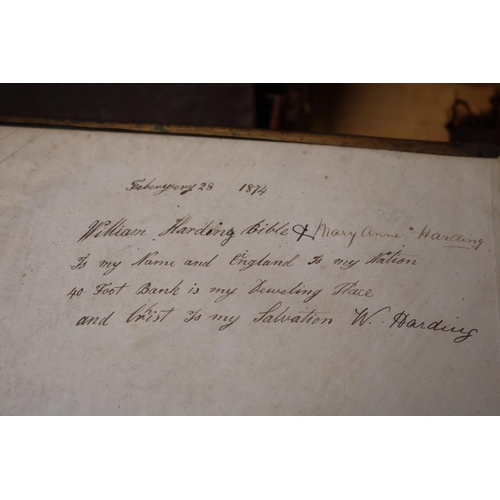 Febuyery 28 1874
William Harding Bible & Mary Anne Harding
Is my Name and England Is my Nation
40 Foot Bank is my Deweling Place
and Crist Is my Salvation W. Harding